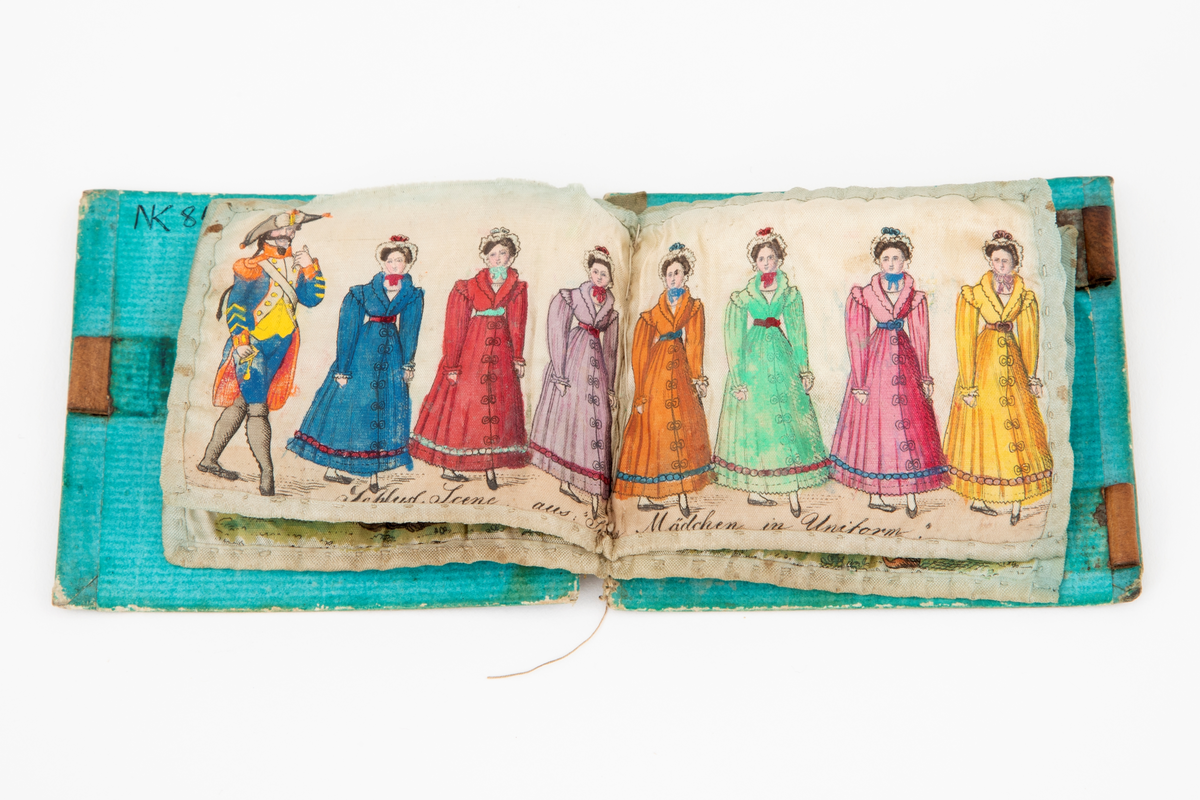 NK 8
Schluß. Scene aus: "Die Mädchen in Uniform."